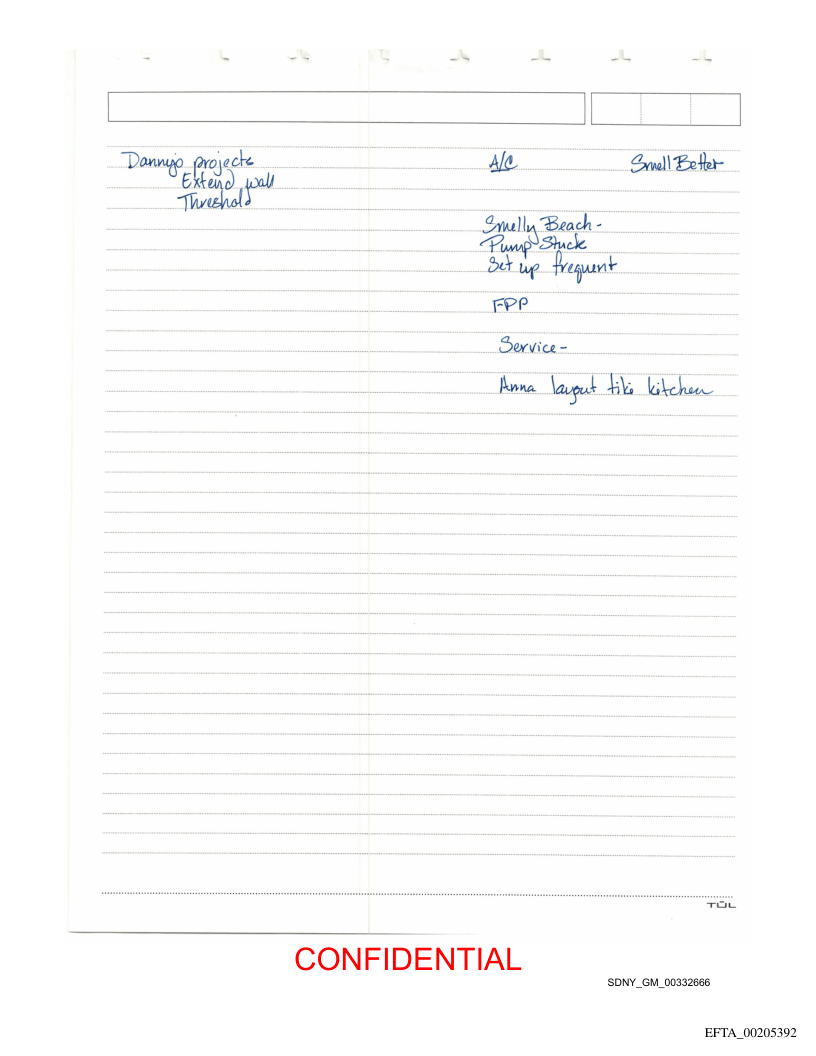 Danny's projects
Extend wall
Threshold
A/C Smell Better
Smelly Beach -
Pump Stuck
Set up frequent
FPP
Service -
Anna layout tiki kitchen
TŪL
CONFIDENTIAL
SDNY_GM_00332666
EFTA_00205392